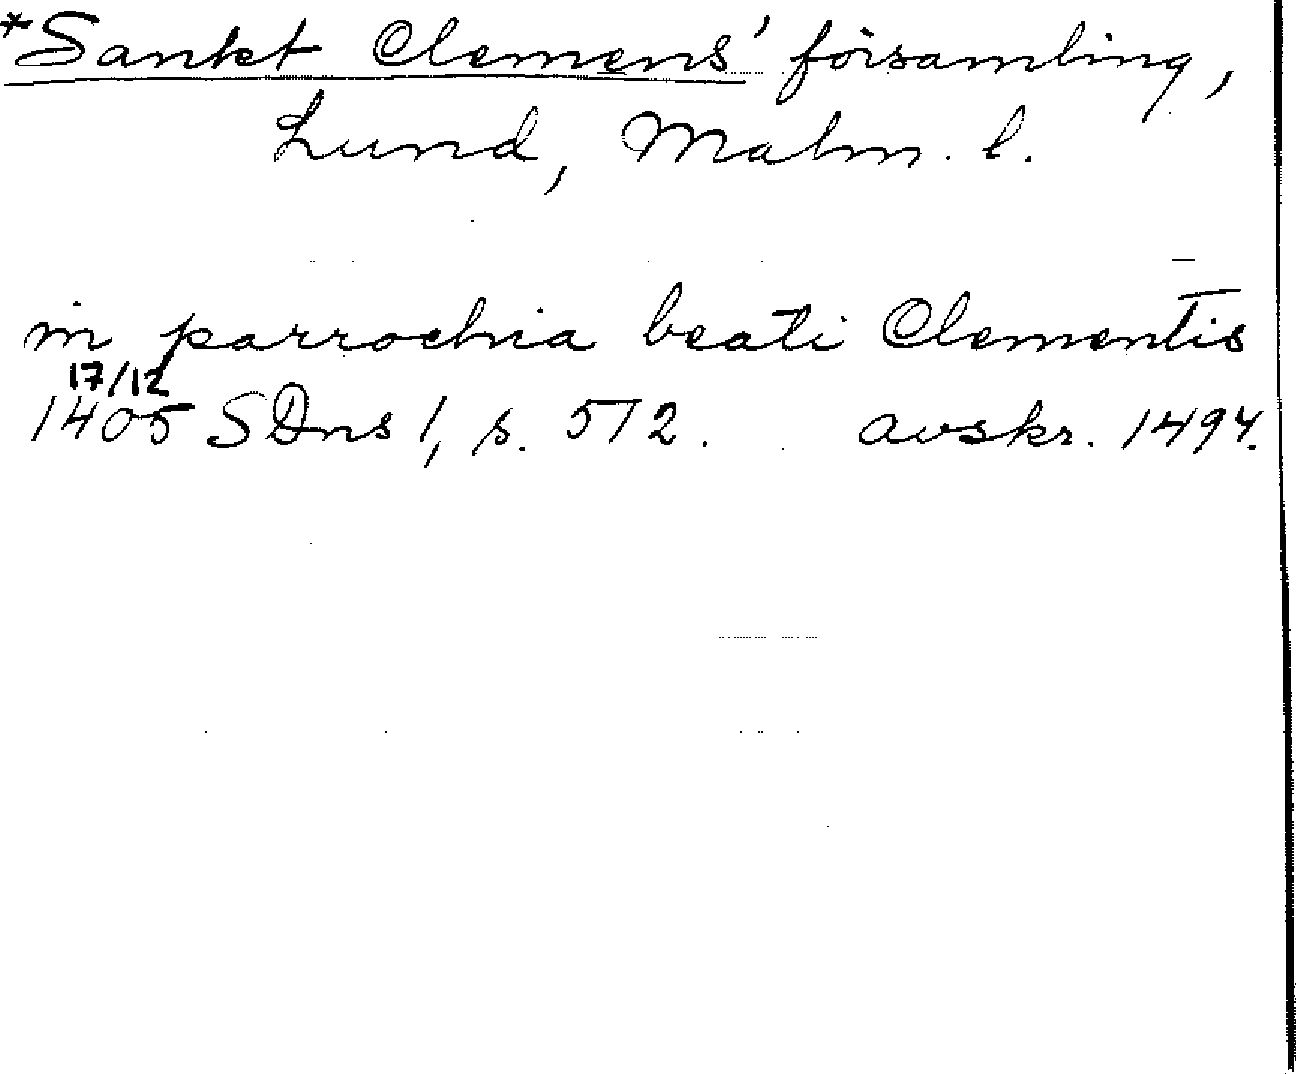 *Sankt Clemens' församling,
Lund, Malm. l.
in parrochia beati Clementis
17/12
1405 SDns 1, s. 572. avskr. 1494.